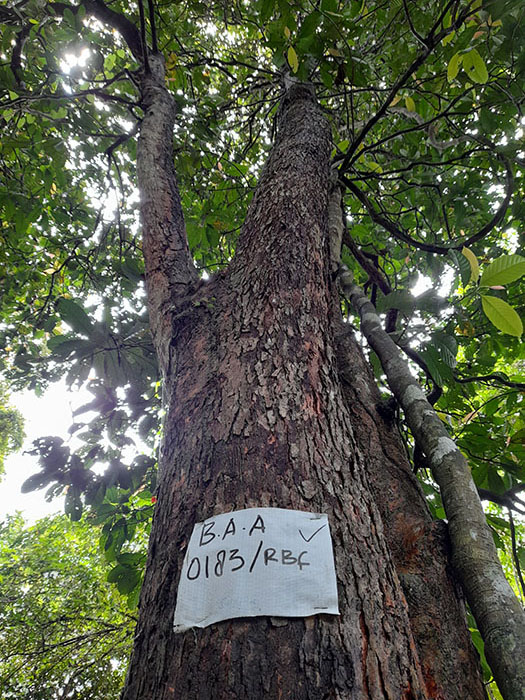 B.A.A ✓
0183/RBF